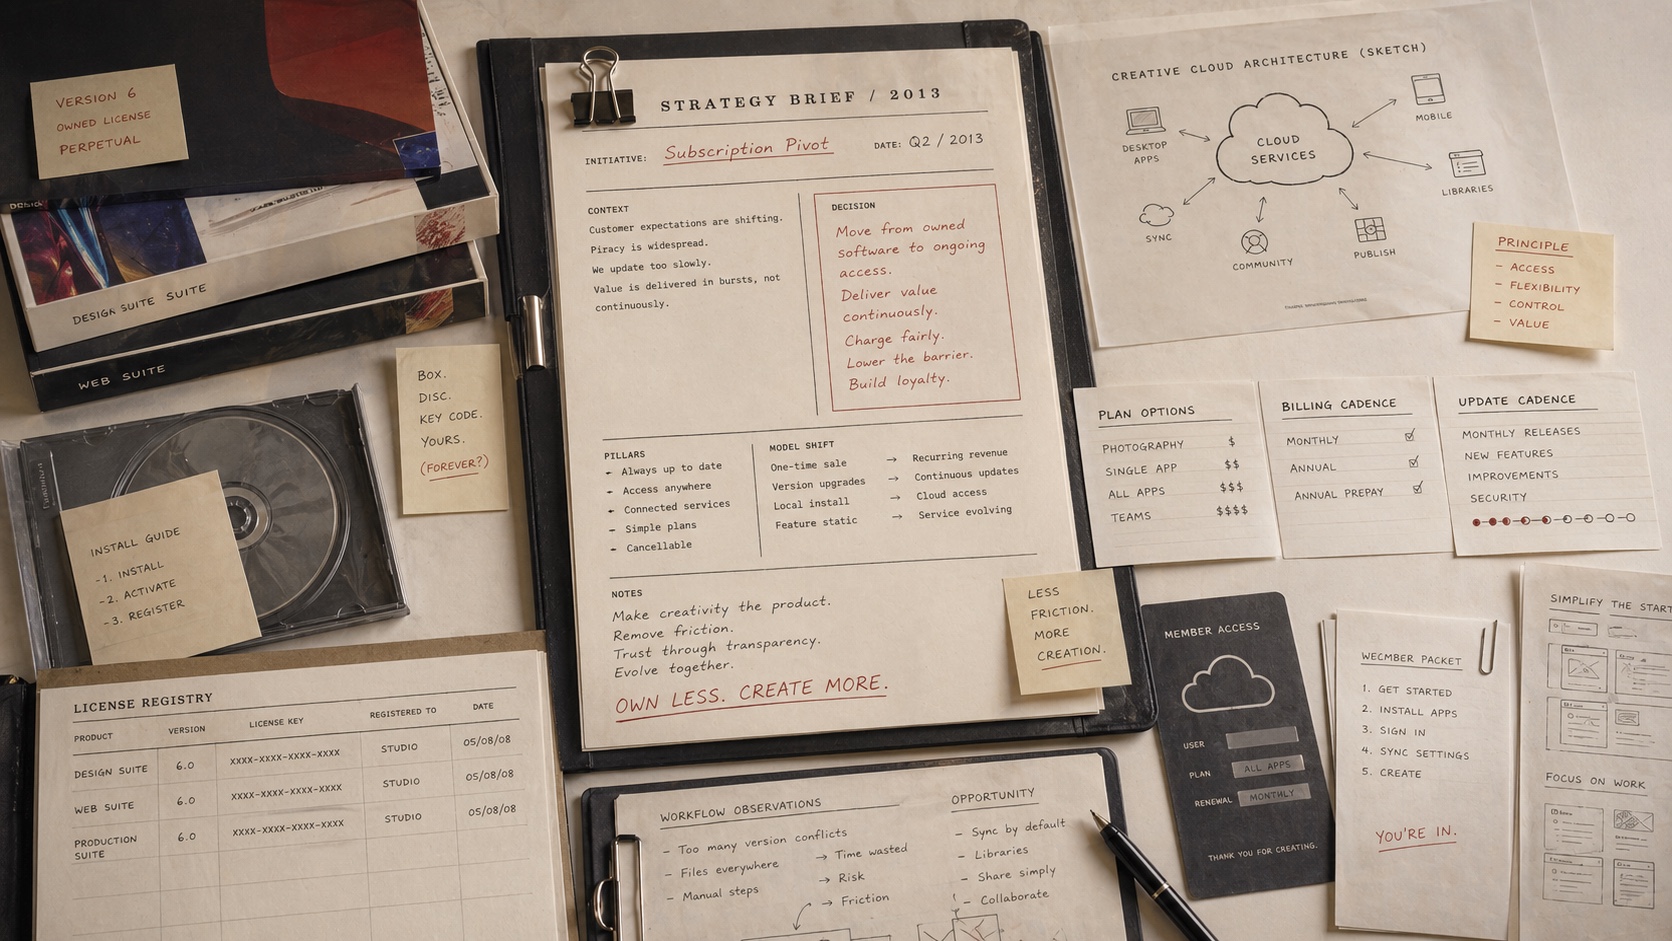 VERSION 6
OWNED LICENSE
PERPETUAL
DESIGN SUITE SUITE
WEB SUITE
BOX.
DISC.
KEY CODE.
YOURS.
(FOREVER?)
INSTALL GUIDE
-1. INSTALL
-2. ACTIVATE
-3. REGISTER
LICENSE REGISTRY
PRODUCT VERSION LICENSE KEY REGISTERED TO DATE
DESIGN SUITE 6.0 XXXX-XXXX-XXXX-XXXX STUDIO 05/08/08
WEB SUITE 6.0 XXXX-XXXX-XXXX-XXXX STUDIO 05/08/08
PRODUCTION SUITE 6.0 XXXX-XXXX-XXXX-XXXX STUDIO 05/08/08
STRATEGY BRIEF / 2013
INITIATIVE: Subscription Pivot DATE: Q2 / 2013
CONTEXT
Customer expectations are shifting.
Piracy is widespread.
We update too slowly.
Value is delivered in bursts, not
continuously.
DECISION
Move from owned
software to ongoing
access.
Deliver value
continuously.
Charge fairly.
Lower the barrier.
Build loyalty.
PILLARS
- Always up to date
- Access anywhere
- Connected services
- Simple plans
- Cancellable
MODEL SHIFT
One-time sale → Recurring revenue
Version upgrades → Continuous updates
Local install → Cloud access
Feature static → Service evolving
NOTES
Make creativity the product.
Remove friction.
Trust through transparency.
Evolve together.
OWN LESS. CREATE MORE.
LESS
FRICTION.
MORE
CREATION.
WORKFLOW OBSERVATIONS
- Too many version conflicts
- Files everywhere → Time wasted
- Manual steps → Risk
→ Friction
OPPORTUNITY
- Sync by default
- Libraries
- Share simply
- Collaborate
CREATIVE CLOUD ARCHITECTURE (SKETCH)
DESKTOP
APPS
CLOUD
SERVICES
MOBILE
LIBRARIES
SYNC
COMMUNITY
PUBLISH
PRINCIPLE
- ACCESS
- FLEXIBILITY
- CONTROL
- VALUE
PLAN OPTIONS
PHOTOGRAPHY $
SINGLE APP $$
ALL APPS $$$
TEAMS $$$$
BILLING CADENCE
MONTHLY
ANNUAL
ANNUAL PREPAY
UPDATE CADENCE
MONTHLY RELEASES
NEW FEATURES
IMPROVEMENTS
SECURITY
MEMBER ACCESS
USER
PLAN ALL APPS
RENEWAL MONTHLY
THANK YOU FOR CREATING.
WECMBER PACKET
1. GET STARTED
2. INSTALL APPS
3. SIGN IN
4. SYNC SETTINGS
5. CREATE
YOU'RE IN.
SIMPLIFY THE START
FOCUS ON WORK